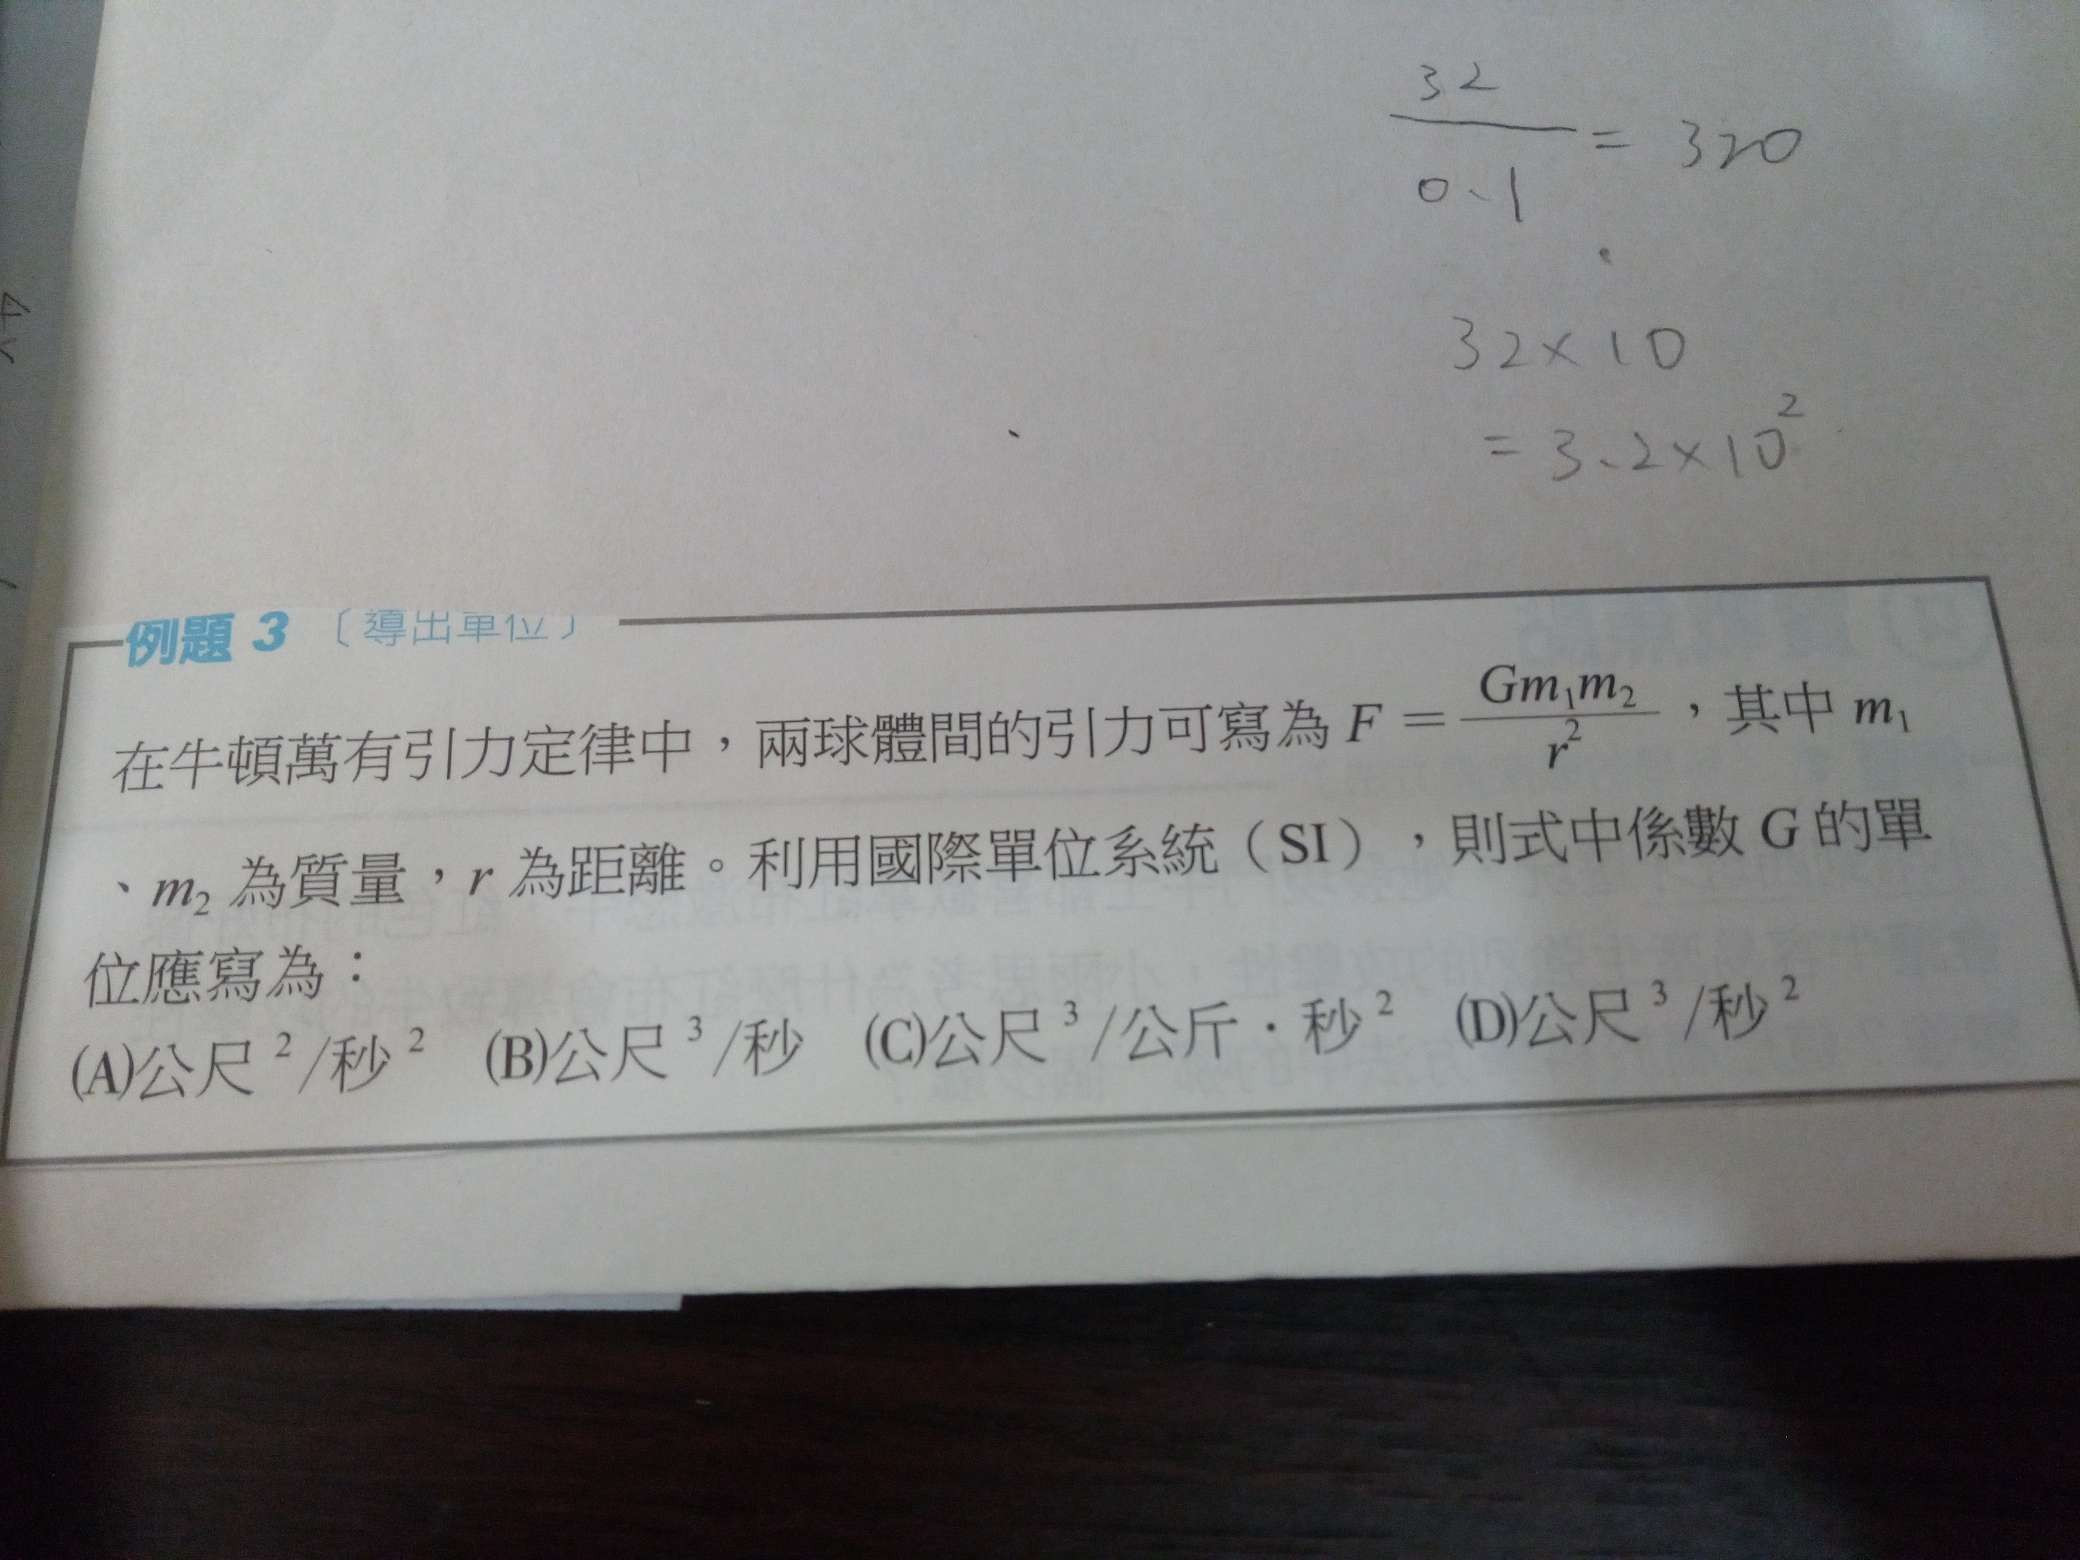 32
0.1
= 320
32×10
= 3.2×10²
例題 3 〔導出單位〕
在牛頓萬有引力定律中，兩球體間的引力可寫為 F = Gm₁m₂ / r²，其中 m₁
、m₂ 為質量，r 為距離。利用國際單位系統（SI），則式中係數 G 的單
位應寫為：
(A)公尺²/秒² (B)公尺³/秒 (C)公尺³/公斤．秒² (D)公尺³/秒²